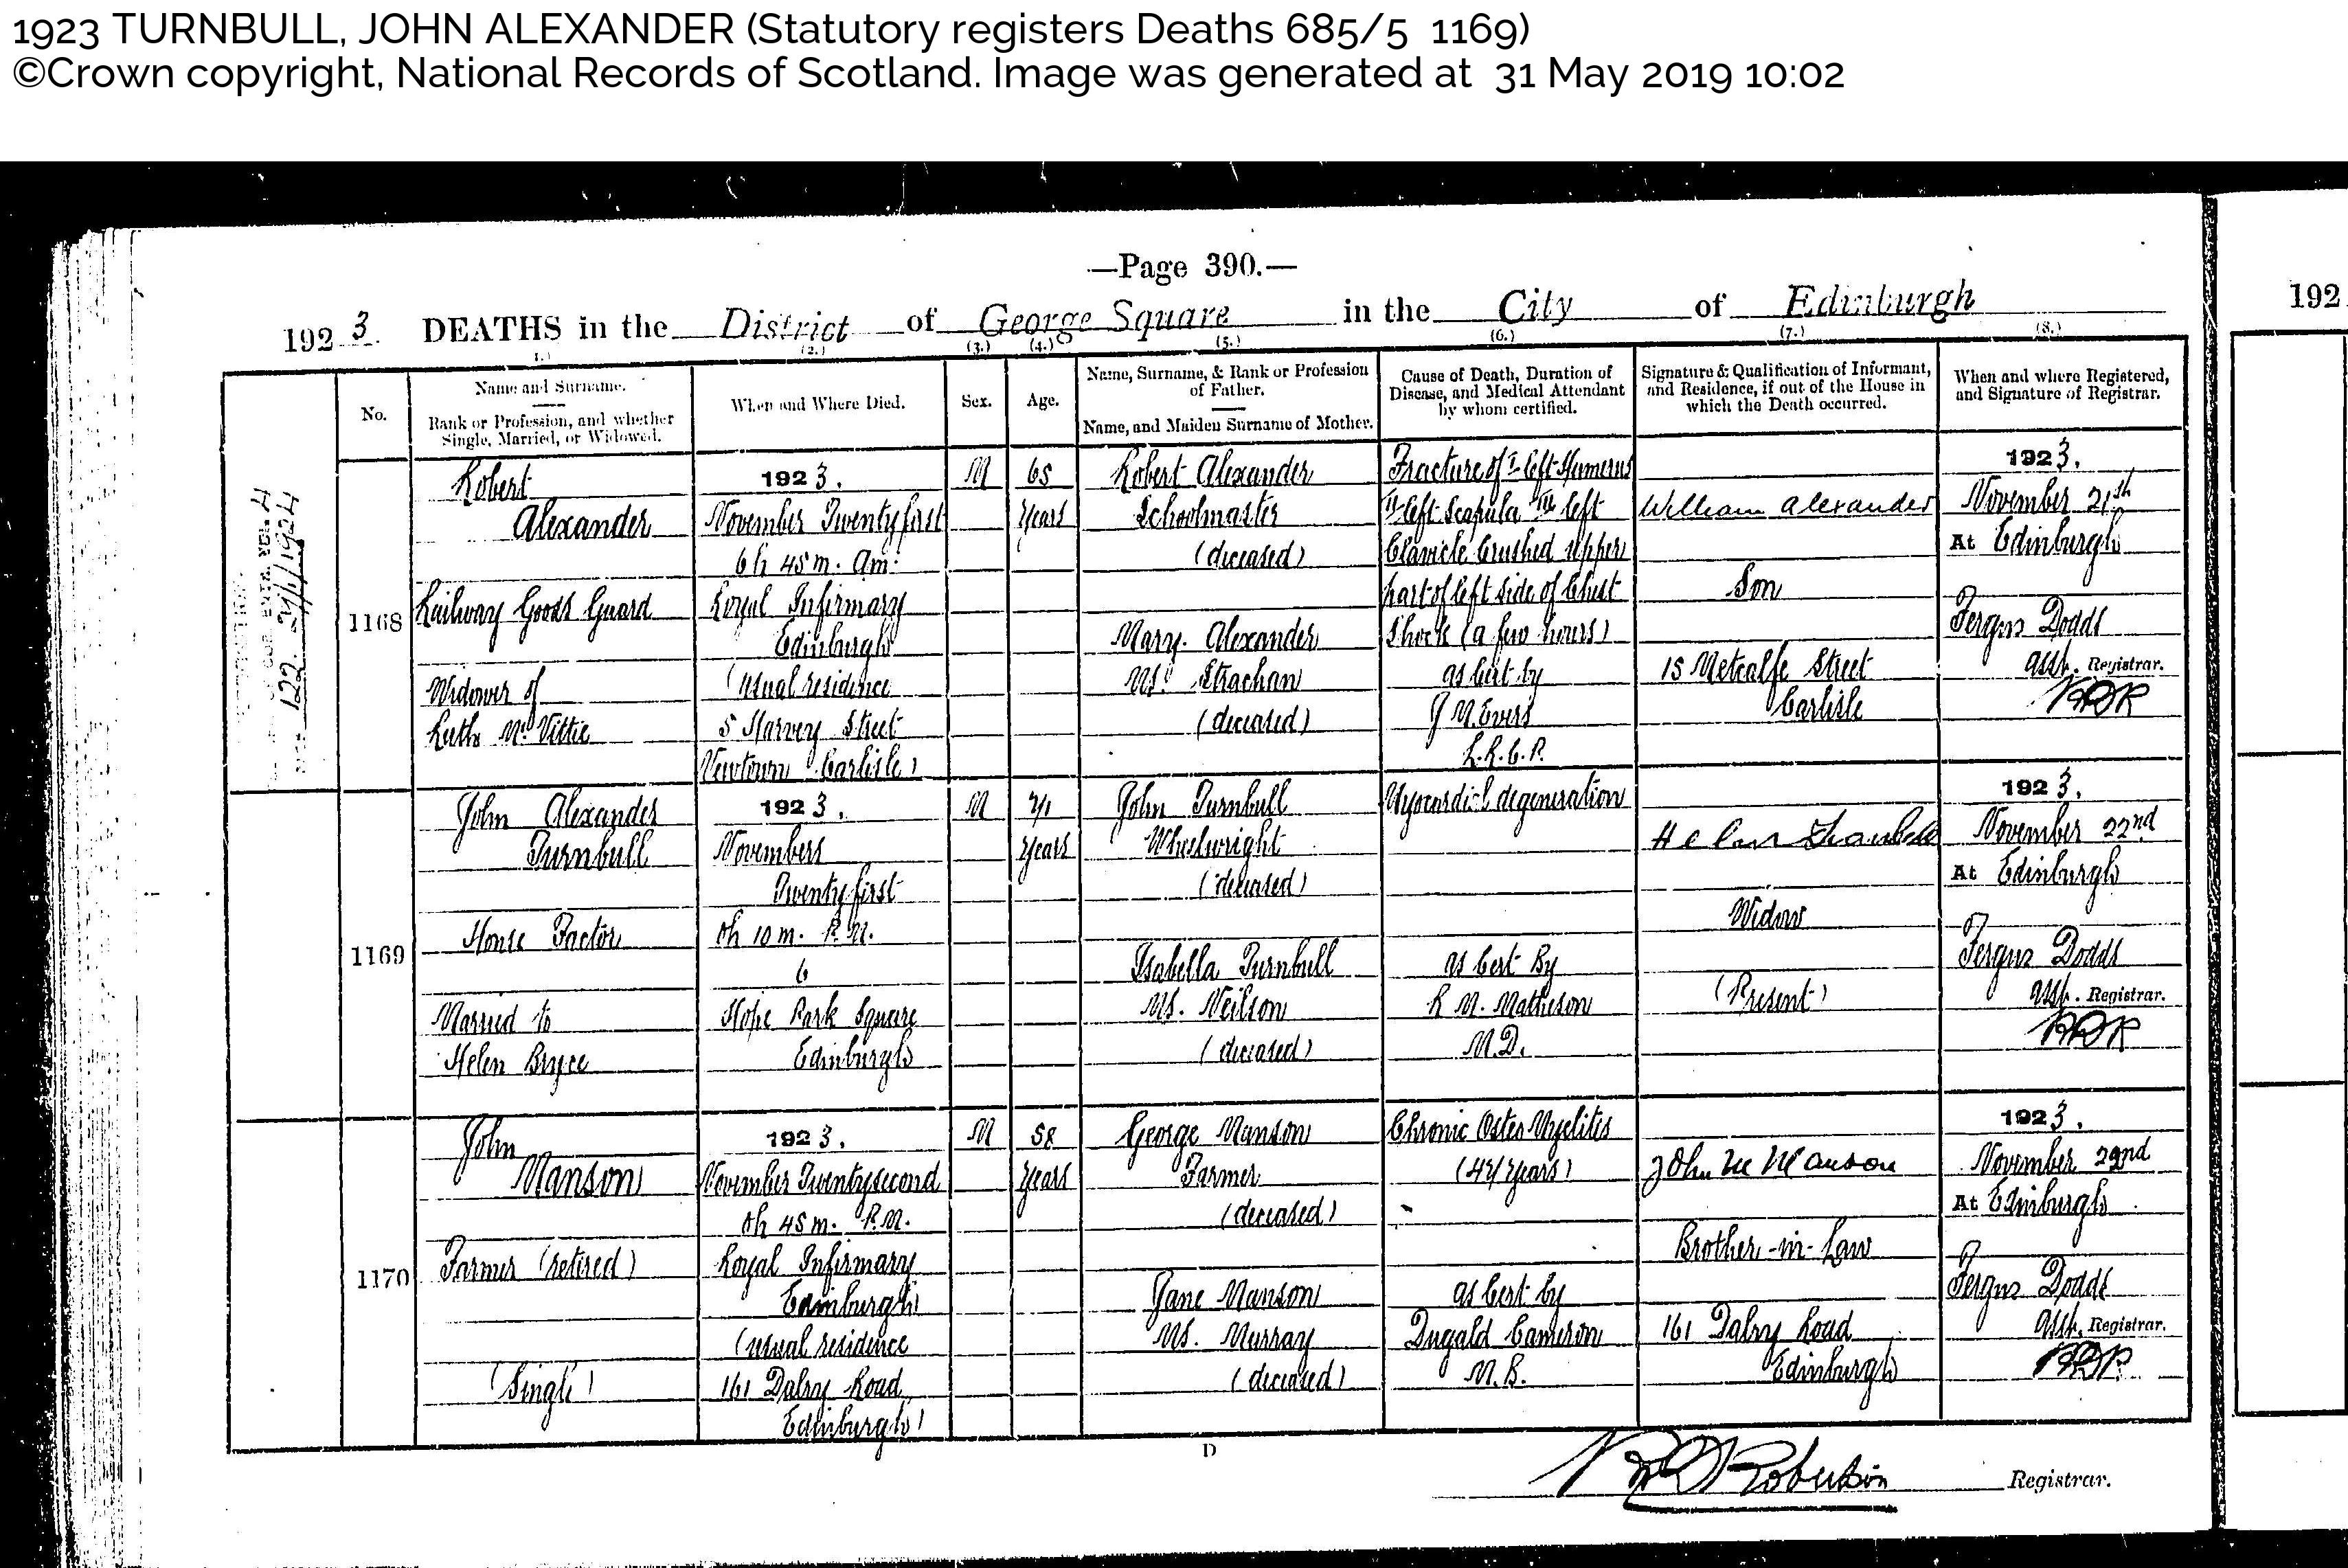 1923 TURNBULL, JOHN ALEXANDER (Statutory registers Deaths 685/5 1169)
©Crown copyright, National Records of Scotland. Image was generated at 31 May 2019 10:02
—Page 390.—
1923. DEATHS in the District of George Square in the City of Edinburgh
192
(1.) (2.) (3.) (4.) (5.) (6.) (7.) (8.)
No.
Name and Surname.
Rank or Profession, and whether
Single, Married, or Widowed.
When and Where Died.
Sex.
Age.
Name, Surname, & Rank or Profession
of Father.
Name, and Maiden Surname of Mother.
Cause of Death, Duration of
Disease, and Medical Attendant
by whom certified.
Signature & Qualification of Informant,
and Residence, if out of the House in
which the Death occurred.
When and where Registered,
and Signature of Registrar.
122
1168
Robert
Alexander
Railway Goods Guard
Widower of
Ruth McVittie
1923.
November Twentyfirst
6h 45m. Am.
Royal Infirmary
Edinburgh
(usual residence
5 Harvey Street
Newtown Carlisle)
M
65
Years
Robert Alexander
Schoolmaster
(deceased)
Mary Alexander
MS. Strachan
(deceased)
Fracture of I left Humerus
II left Scapula III left
Clavicle Crushed upper
part of left side of Chest
Shock (a few hours)
as Cert by
J M. Evers
L.R.C.P.
William Alexander
Son
15 Metcalfe Street
Carlisle
1923.
November 21st
At Edinburgh
Fergus Dodds
Asst. Registrar.
1169
John Alexander
Turnbull
House Factor
Married to
Helen Bryce
1923.
November
Twentyfirst
0h 10m. P.M.
6
Hope Park Square
Edinburgh
M
71
Years
John Turnbull
Wheelwright
(deceased)
Isabella Turnbull
MS. Neilson
(deceased)
Myocardial degeneration
as Cert By
R M. Matheson
M.D.
Helen Turnbull
Widow
(Present)
1923.
November 22nd
At Edinburgh
Fergus Dodds
Asst. Registrar.
1170
John
Manson
Farmer (retired)
(Single)
1923.
November Twentysecond
0h 45m. P.M.
Royal Infirmary
Edinburgh
(usual residence
161 Dalry Road
Edinburgh)
M
58
Years
George Manson
Farmer
(deceased)
Jane Manson
MS. Murray
(deceased)
Chronic Osteo Myelites
as Cert by
Dugald Cameron
M.B.
John Manson
Brother-in-Law
161 Dalry Road
Edinburgh
1923.
November 22nd
At Edinburgh
Fergus Dodds
Asst. Registrar.
D
Robertson Registrar.